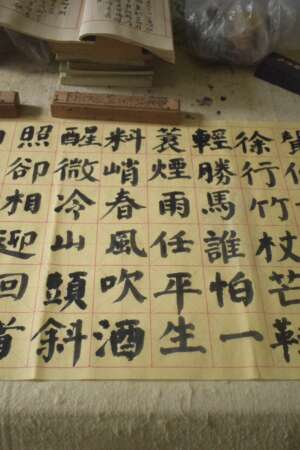 徐行竹杖芒鞋
輕勝馬誰怕一
蓑煙雨任平生
料峭春風吹酒
醒微冷山頭斜
照卻相迎回首